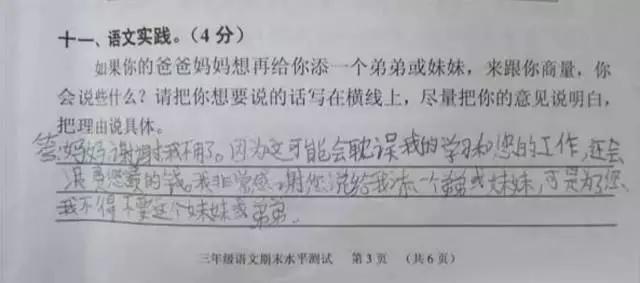 十一、语文实践。(4分)
如果你的爸爸妈妈想再给你添一个弟弟或妹妹，来跟你商量，你
会说些什么？请把你想要说的话写在横线上，尽量把你的意见说明白，
把理由说具体。
答:妈妈谢谢我不用了。因为这可能会耽误我的学习和您的工作,还会
浪费您的钱。我非常感谢您说给我添一个弟弟或妹妹,可是为了您、
我不得不要这个妹妹或弟弟。
三年级语文期末水平测试 第3页 (共6页)